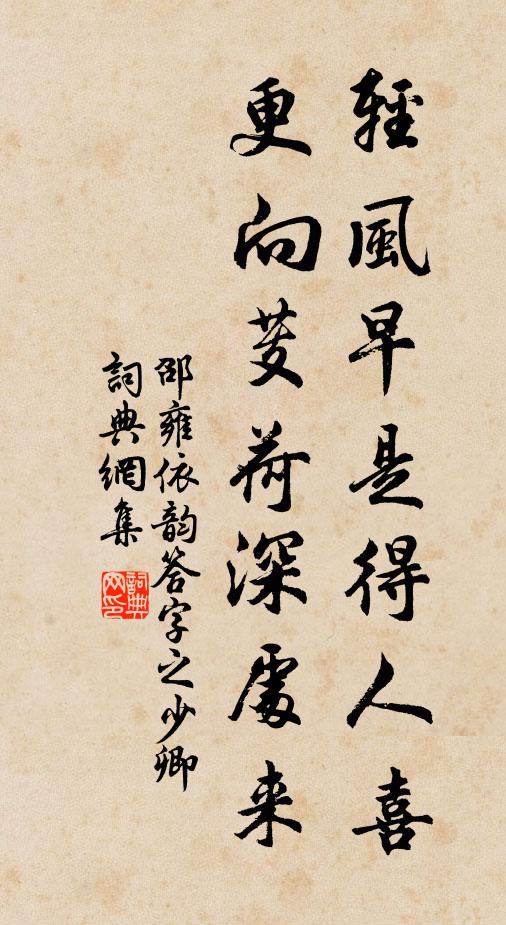 輕風早是得人喜
更向芰荷深處来
邵雍依韵答字之少卿
詞典網集
詞典
网印